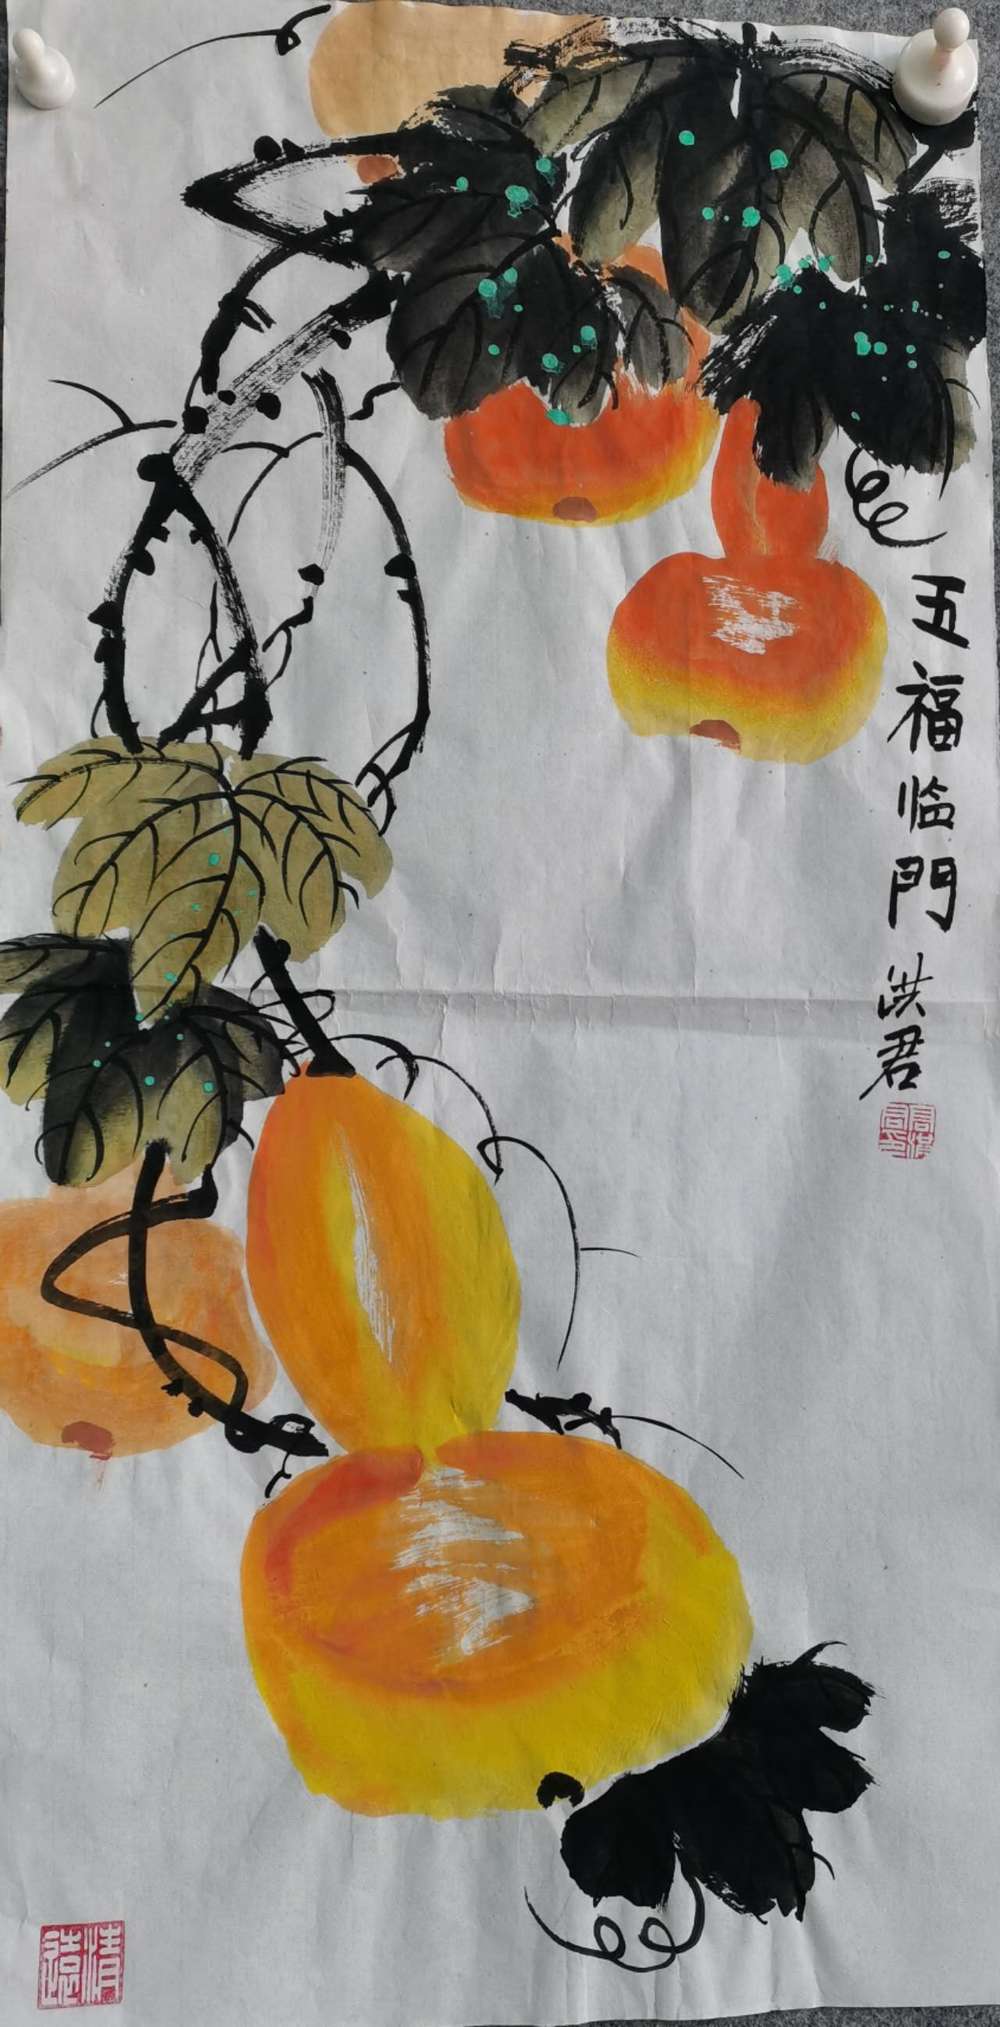 五福临門
洪君
清遠